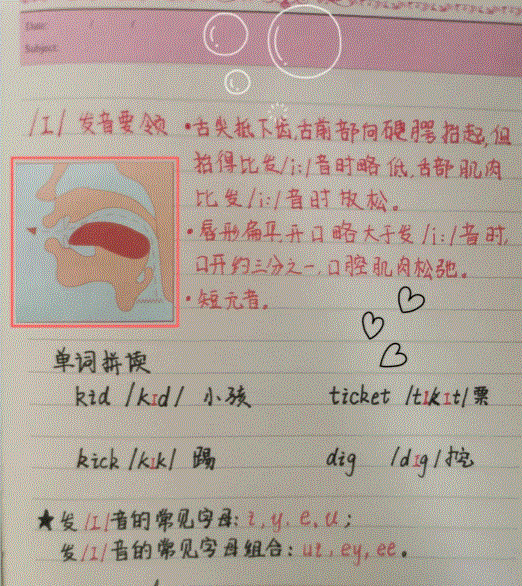 Date: / /
Subject:
/I/ 发音要领 •舌尖抵下齿,舌前部向硬腭抬起,但
抬得比发/i:/音时略低,舌部肌肉
比发/i:/音时放松。
•唇形扁平,开口略大于发/i:/音时,
口开约三分之一,口腔肌肉松弛。
•短元音。
单词拼读
kid /kɪd/ 小孩 ticket /tɪkɪt/票
kick /kɪk/ 踢 dig /dɪg/挖
★发/I/音的常见字母:i,y,e,u;
发/I/音的常见字母组合:ui,ey,ee。